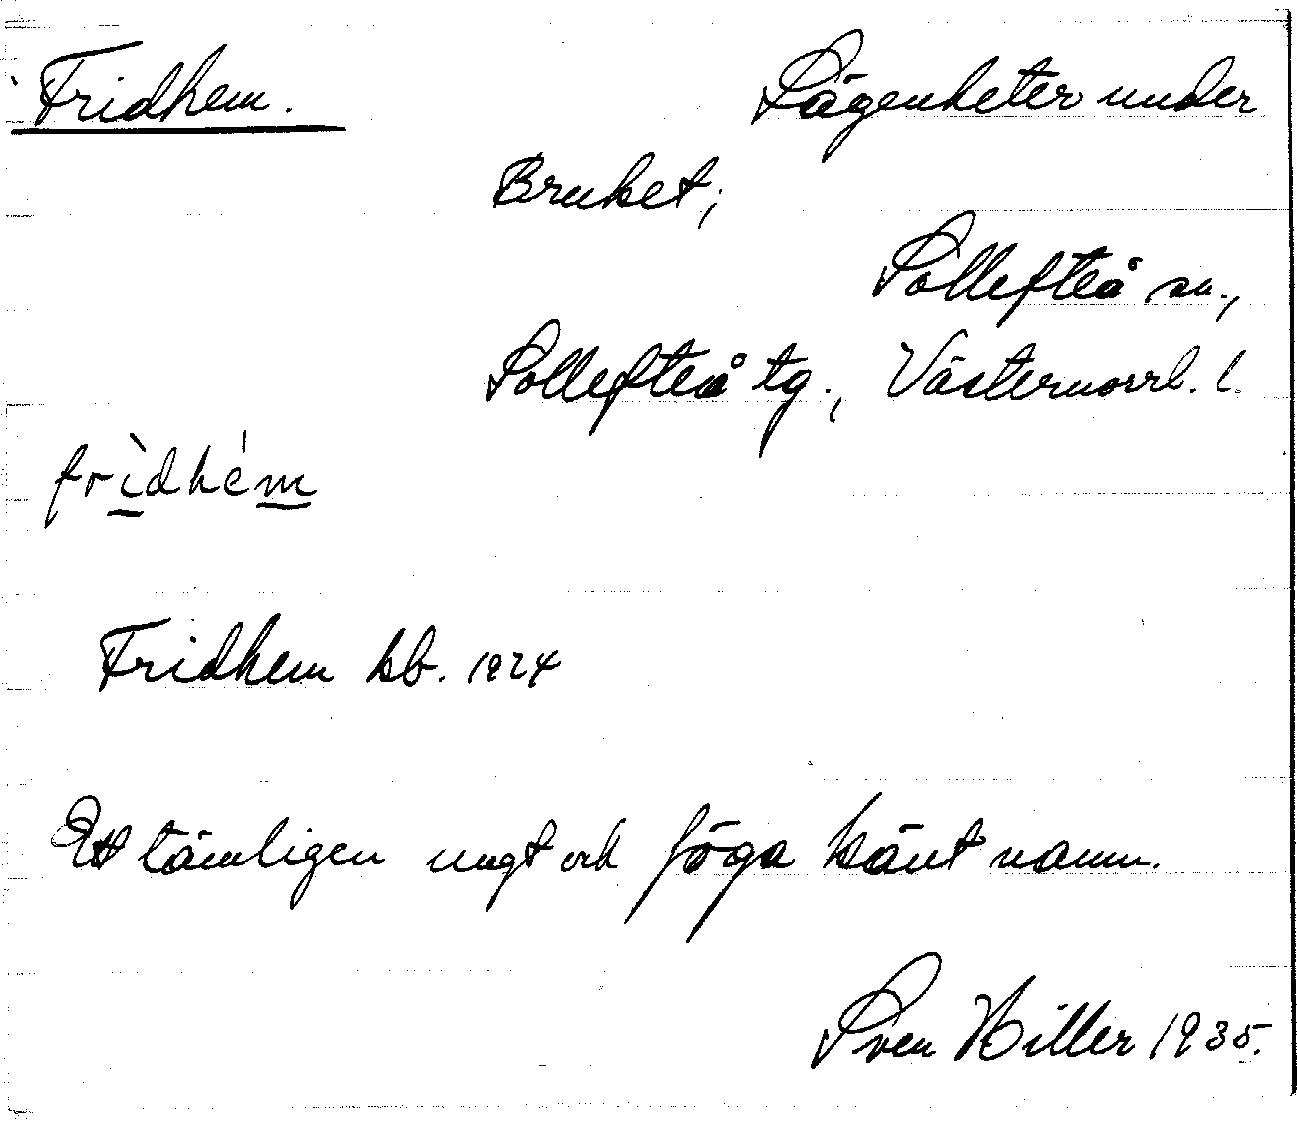 Fridhem. Lägenheter under
Bruket;
Sollefteå sn.,
Sollefteå tg., Västernorrl. l.
frìdhém
Fridhem kb. 1924
Ett tämligen ungt och föga känt namn.
Sven Hiller 1935.